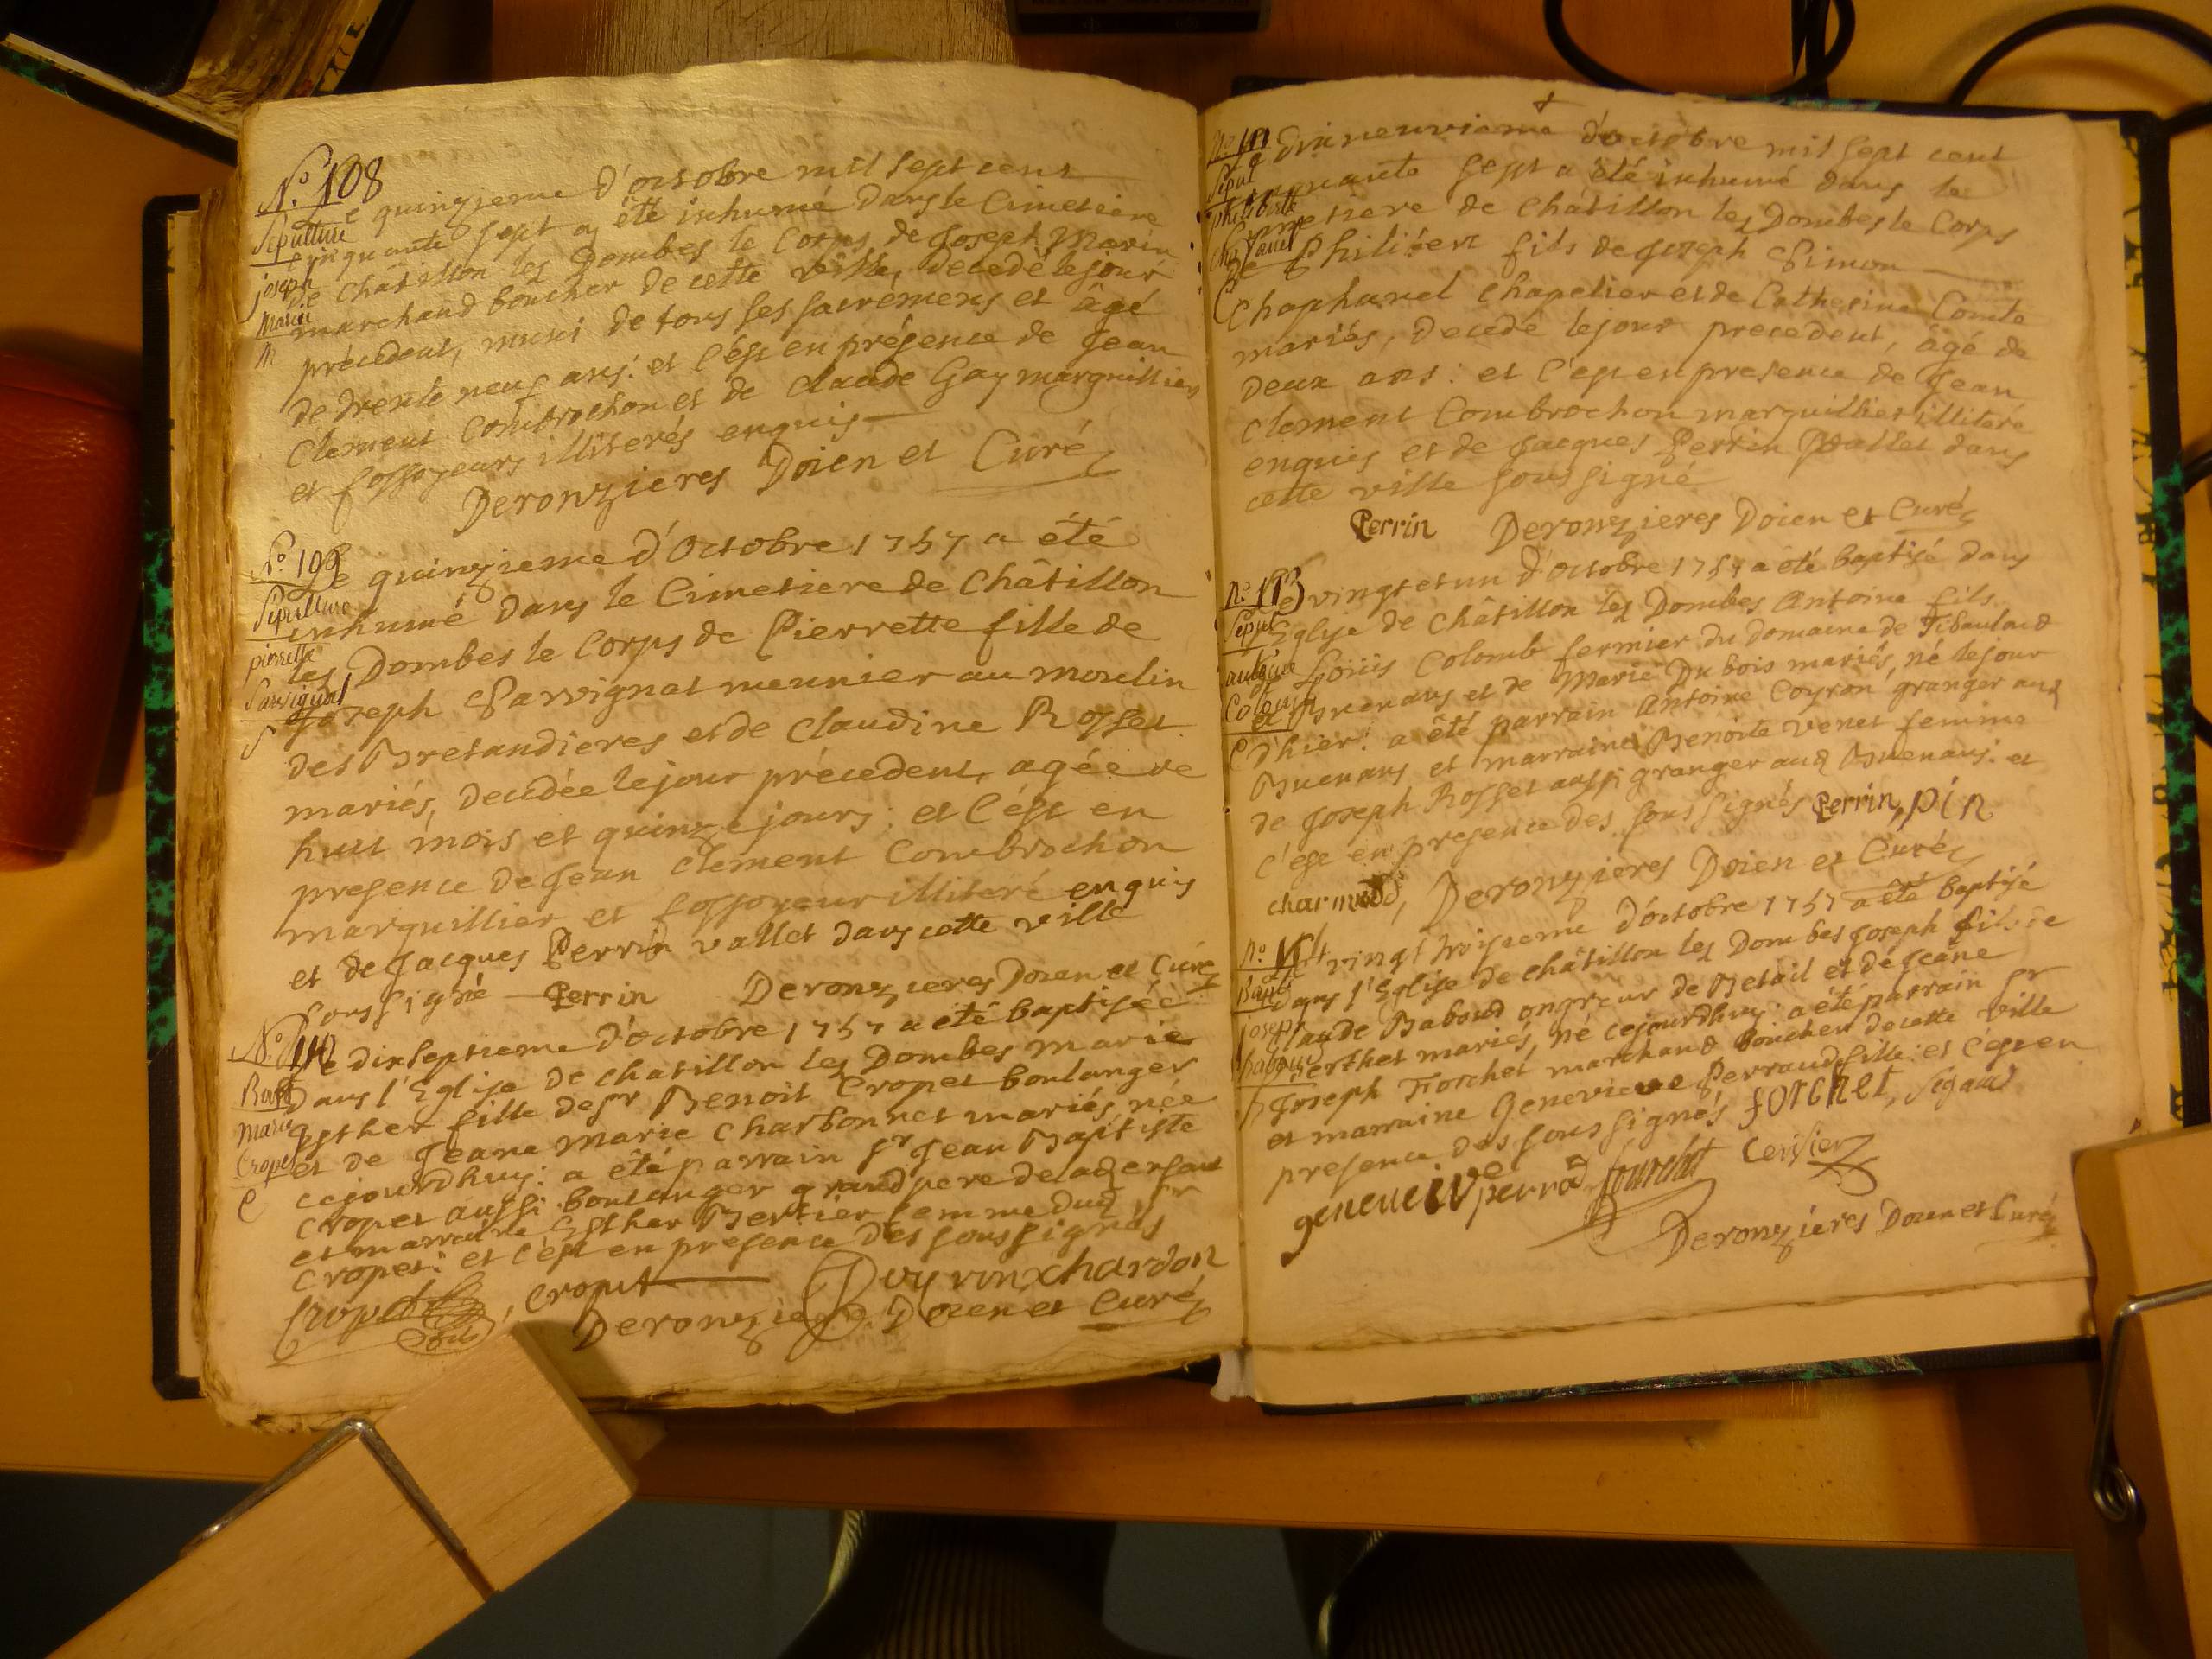 N.o 108
Sepulture
joseph
Marin
Le quinzieme d'octobre mil sept cent
cinquante sept a été inhumé dans le Cimetiere
de Châtillon les Dombes le Corps de Joseph Marin
marchand boucher de cette ville, decedé le jour
précedent, muni de tous ses sacrémens et âgé
de trente neuf ans: et c'ést en présence de Jean
Clement Combrochon et de claude Gay marguilliers
et fossoyeurs illiterés enquis
Deronzieres Doien et Curé
N.o 109
Sepulture
pierrette
Sarvignat
Le quinzieme d'Octobre 1757 a été
inhumé dans le Cimetiere de Châtillon
les Dombes le Corps de Pierrette fille de
Joseph Sarvignat meunier au moulin
des Bretandieres et de Claudine Rosset
mariés, decédée le jour précedent, agée de
huit mois et quinze jours: et c'ést en
presence de Jean Clement Combrochon
marguillier et fossoyeur illiteré enquis
et de Jacques Perrin vallet dans cette ville
soussigné Perrin Deronzieres Doien et Curé
N.o 110
Bapt
Marie
Cropet
Le dixseptieme d'octobre 1757 a été baptisée
dans l'Eglise de chatillon les Dombes marie
Esther fille de sr Benoit Cropet boulanger
et de Jeane Marie Charbonnet mariés, née
cejourdhuy: a été parrain sr Jean Baptiste
Cropet aussi boulanger grand pere de
et marraine Esther Bertier femme dud sr
Cropet: et c'ést en presence des soussignés
Cropet fils, cropet Chardon
Deronzieres Doien et Curé
Sepul
Le dixneuvieme d'octobre mil sept cent
cinquante sept a été inhumé dans le
Cimetiere de Châtillon les Dombes le Corps
de Philibert fils de Joseph Simon
Chaphanel Chapelier et de Catherine Comte
mariés, decedé le jour precedent, âgé de
deux ans: et c'ést en presence de Jean
Clement Combrochon marguillier illiteré
enquis et de Jacques Perrin Vallet dans
cette ville soussigné
Perrin Deronzieres Doien et Curé
N.o 113
Sepul
Le vingt et un d'octobre 1757 a été baptisé dans
l'Eglise de Châtillon les Dombes Antoine fils
de Loüis Colomb fermier du domaine de
et de Marie Dubois mariés, né le jour
d'hier: a été parrain Antoine Coyron granger aux
Buenans et marraine Benoite Venet femme
de Joseph Rosset aussi granger aux Buenans: et
c'ést en presence des soussignés Perrin, pin
Deronzieres Doien et Curé
Bapt
Joseph
Baboud
Le vingt troisieme d'octobre 1757 a été baptisé
dans l'Eglise de Châtillon les Dombes Joseph fils de
Claude Baboud de Betail et de Jeane
Berthet mariés, né cejourdhuy: a été parrain sr
Joseph Forchet marchand Boucher de cette ville
et marraine Genevieve Perraud fille: et c'ést en
presence des soussignés, forchet,
Cerisier
Deronzieres Doien et Curé